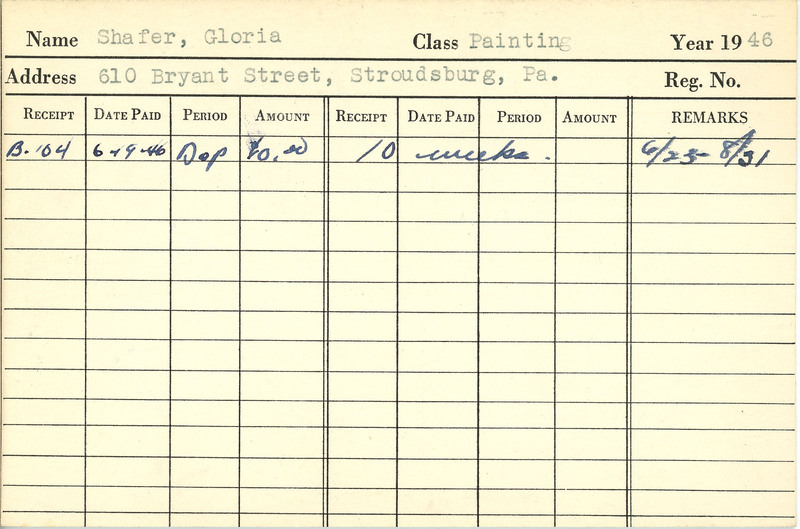 Name Shafer, Gloria Class Painting Year 1946
Address 610 Bryant Street, Stroudsburg, Pa. Reg. No.
RECEIPT DATE PAID PERIOD AMOUNT RECEIPT DATE PAID PERIOD AMOUNT REMARKS
B-104 6-19-46 Dep 10.00 10 weeks. 6/23-8/31